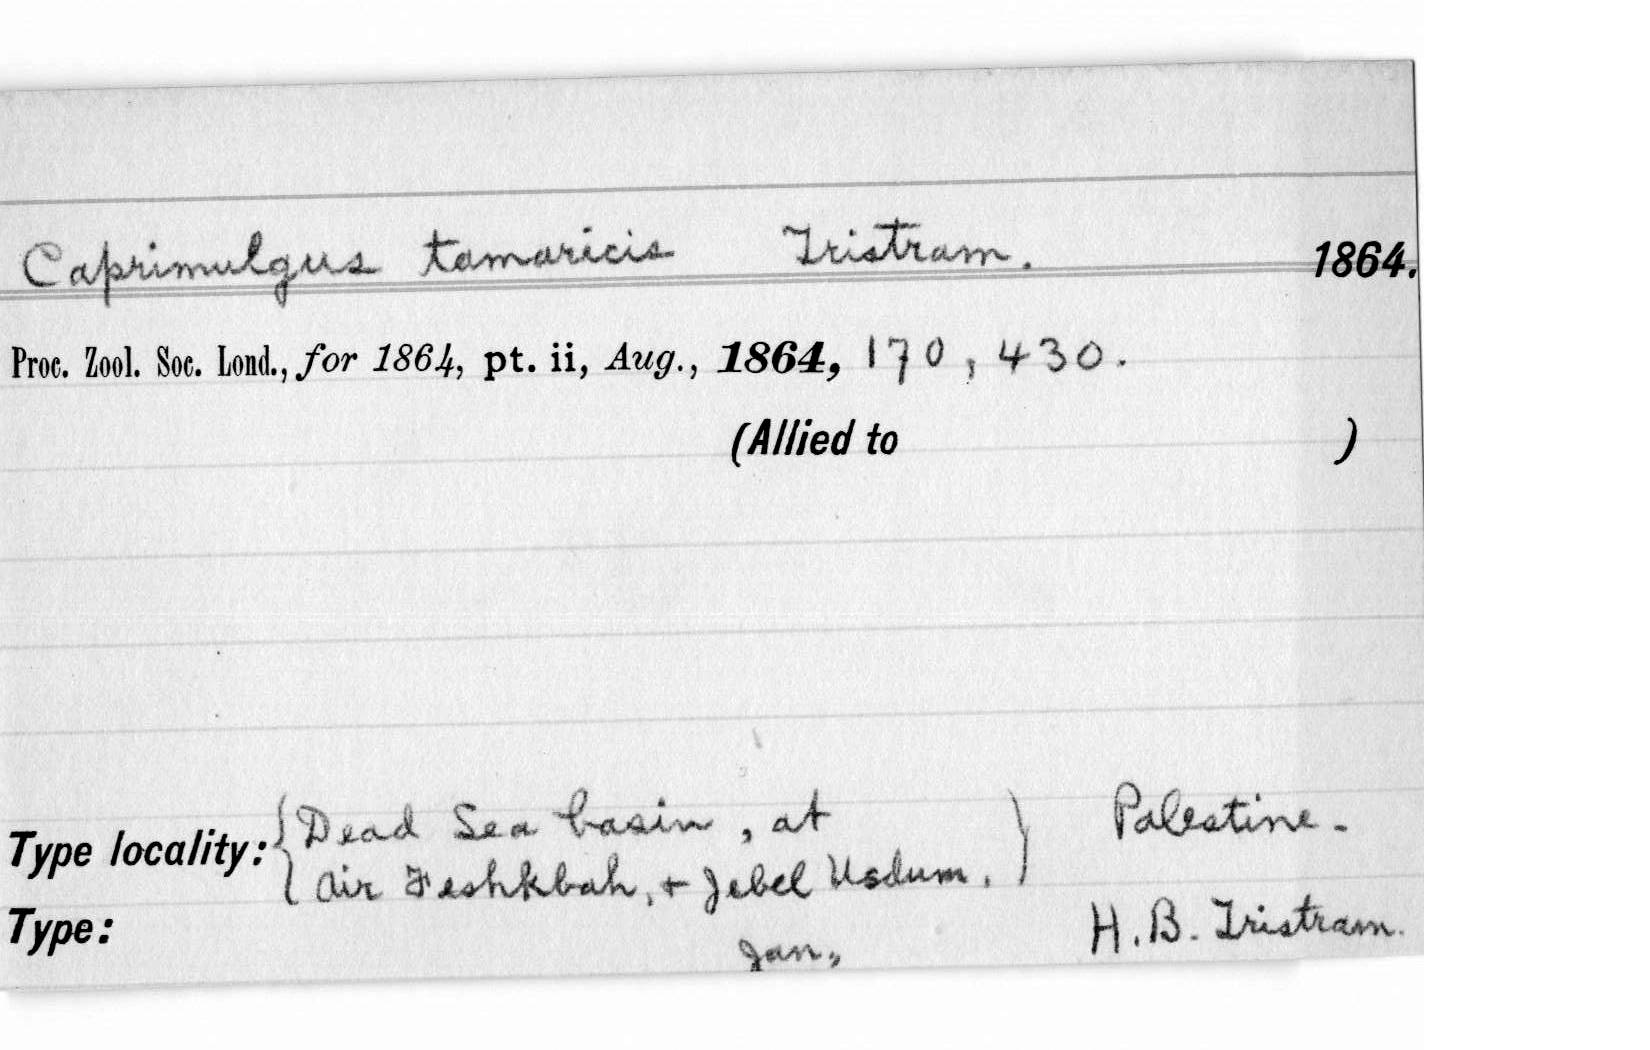 Caprimulgus tamaricis Tristram. 1864.
Proc. Zool. Soc. Lond., for 1864, pt. ii, Aug., 1864, 170, 430.
(Allied to )
Type locality: { Dead Sea basin, at } Palestine.
Air Feshkbah, + Jebel Usdum.
Type: Jan, H. B. Tristram.